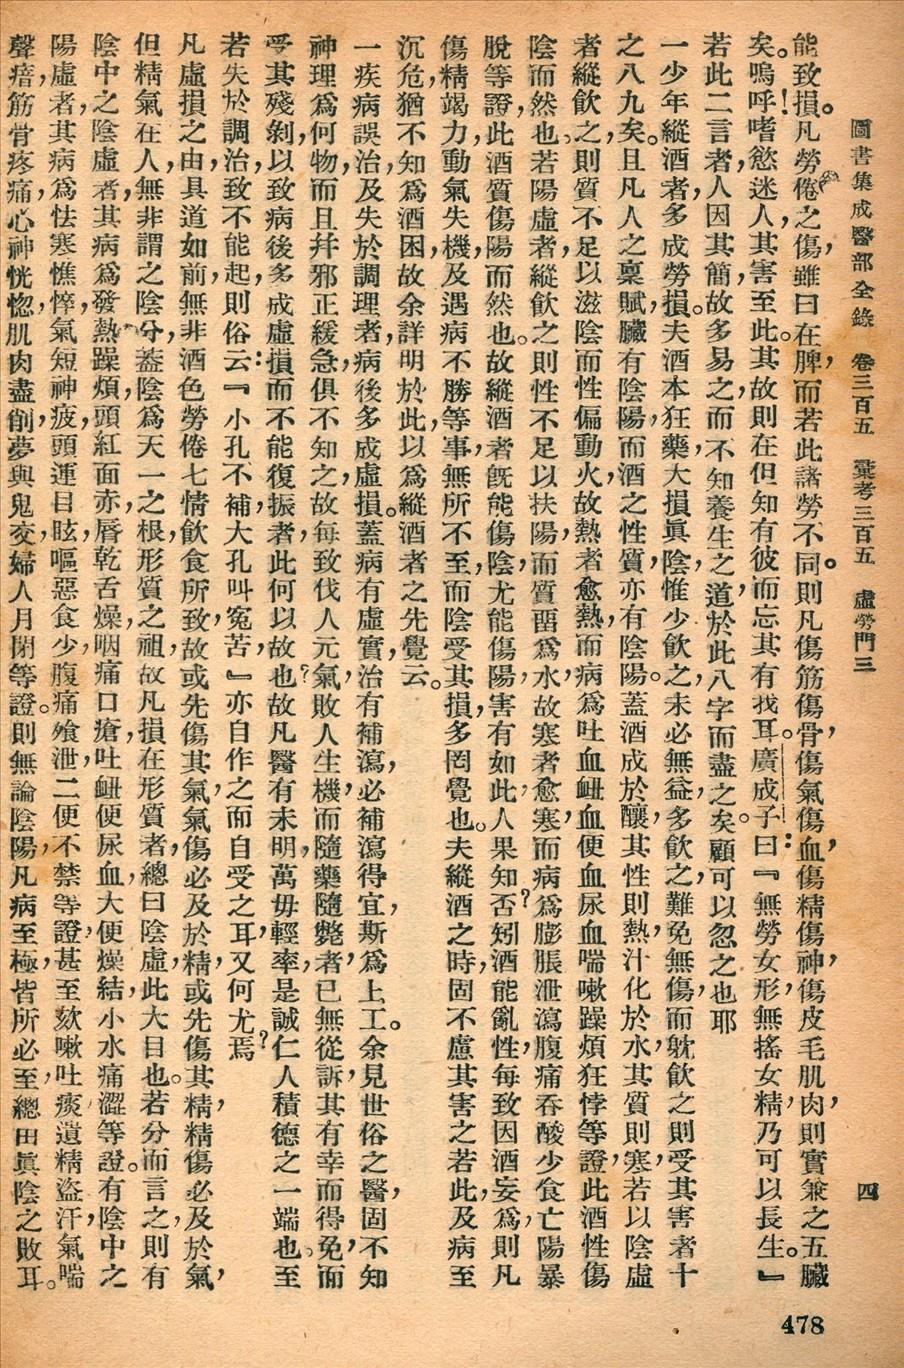 圖書集成醫部全錄　卷三百五　彙考三百五　虛勞門三　四
能致損。凡勞倦之傷，雖曰在脾，而若此諸勞不同。則凡傷筋傷骨，傷氣傷血，傷精傷神，傷皮毛肌肉，則實兼之五臟
矣。嗚呼！嗜慾迷人，其害至此。其故則在但知有彼，而忘其有找耳。廣成子曰：『無勞女形，無搖女精，乃可以長生。』
若此二言者，人因其簡，故多易之，而不知養生之道，於此八字而盡之矣。顧可以忽之也耶
一少年縱酒者，多成勞損。夫酒本狂藥，大損眞陰，惟少飲之，未必無益，多飲之，難免無傷，而躭飲之則受其害者十
之八九矣。且凡人之稟賦，臟有陰陽，而酒之性質，亦有陰陽。蓋酒成於釀，其性則熱，汁化於水，其質則寒，若以陰虛
者縱飲之，則質不足以滋陰，而性偏動火，故熱者愈熱，而病爲吐血衄血便血尿血喘嗽躁煩狂悖等證，此酒性傷
陰而然也。若陽虛者，縱飲之則性不足以扶陽，而質畱爲水，故寒者愈寒，而病爲膨脹泄瀉腹痛吞酸少食亡陽暴
脫等證，此酒質傷陽而然也。故縱酒者旣能傷陰，尤能傷陽，害有如此，人果知否？矧酒能亂性，每致因酒妄爲，則凡
傷精竭力，動氣失機，及遇病不勝等事，無所不至，而陰受其損，多罔覺也。夫縱酒之時，固不慮其害之若此，及病至
沉危，猶不知爲酒困，故余詳明於此，以爲縱酒者之先覺云。
一疾病誤治，及失於調理者，病後多成虛損。蓋病有虛實，治有補瀉，必補瀉得宜，斯爲上工。余見世俗之醫，固不知
神理爲何物，而且幷邪正緩急，俱不知之，故每致伐人元氣，敗人生機，而隨藥隨斃者，已無從訴，其有幸而得免，而
受其殘剝，以致病後多成虛損而不能復振者，此何以故也？故凡醫有未明，萬毋輕率，是誠仁人積德之一端也。至
若失於調治，致不能起，則俗云：『小孔不補，大孔叫寃苦，』亦自作之而自受之耳，又何尤焉？
凡虛損之由，具道如前，無非酒色勞倦七情飲食所致，故或先傷其氣，氣傷必及於精，或先傷其精，精傷必及於氣，
但精氣在人，無非謂之陰分，葢陰爲天一之根，形質之祖，故凡損在形質者，總曰陰虛，此大目也。若分而言之，則有
陰中之陰虛者，其病爲發熱躁煩，頭紅面赤，唇乾舌燥，咽痛口瘡，吐衄便尿血，大便燥結，小水痛澀等證。有陰中之
陽虛者，其病爲怯寒憔悴，氣短神疲，頭運目眩，嘔惡食少，腹痛飧泄，二便不禁等證，甚至欬嗽吐痰，遺精盜汗，氣喘
聲瘖，筋骨疼痛，心神恍惚，肌肉盡削，夢與鬼交，婦人月閉等證。則無論陰陽，凡病至極，皆所必至，總由眞陰之敗耳。
478